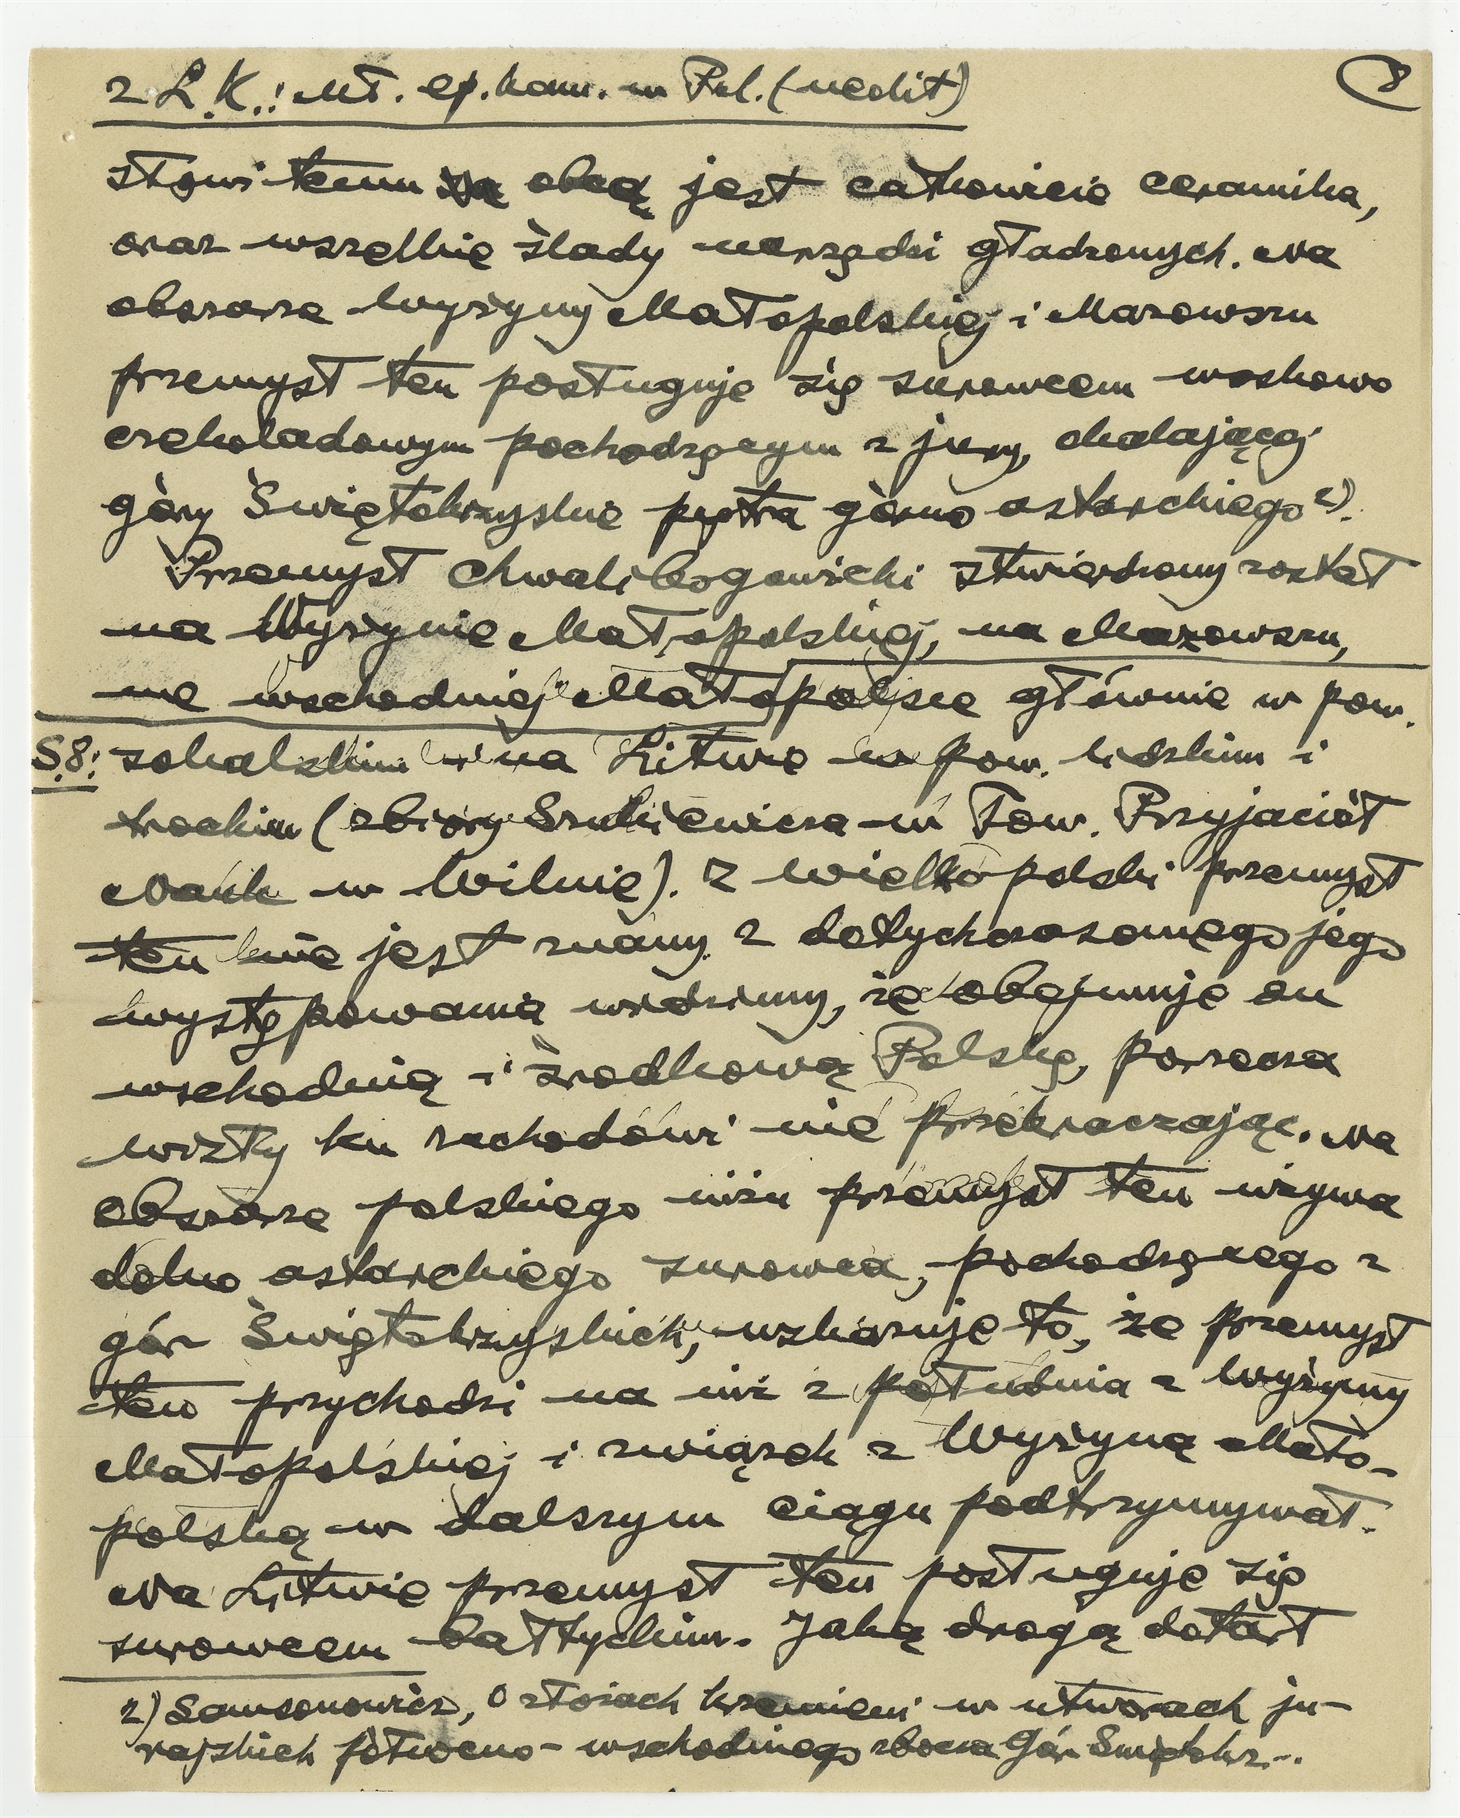 z L.K.: Mł. ep. kam. w Pol. (nedit) 8
słowi temu obcą jest całkowicie ceramika,
oraz wszelkie ślady narzędzi gładzonych. Na
obszarze Wyżyny Małopolskiej i Mazowszu
przemysł ten posługuje się surowcem woskowo
czekoladowym pochodzącym z jury, okalającej
góry Świętokrzyskie piętra górno astarckiego 2).
Przemysł chwalibogowicki stwierdzony został
na Wyżynie Małopolskiej, na Mazowszu,
we wschodniej Małopolsce głównie w pow.
S.8: sokalskim i na Litwie w pow. lidzkim i
trockim (zbiory Szukiewicza w Tow. Przyjaciół
Nauk w Wilnie). Z Wielkopolski przemysł
ten nie jest znany. Z dotychczasowego jego
występowania widzimy, że obejmuje on
wschodnią i środkową Polskę, poza
Wisły ku zachodowi nie przekraczając. Na
obszarze polskiego niżu przemysł ten używa
dolno astarckiego surowca, pochodzącego z
gór Świętokrzyskich, wskazuje to, że przemysł
ten przychodzi na niż z południa z Wyżyny
Małopolskiej i związek z Wyżyną Mało-
polską w dalszym ciągu podtrzymywał.
Na Litwie przemysł ten posługuje się
surowcem bałtyckim. Jaką drogą dotarł
2) Samsonowicz, O złożach krzemieni w utworach ju-
rajskich półwceno-wschodniego zbocza Gór Świętokrz...